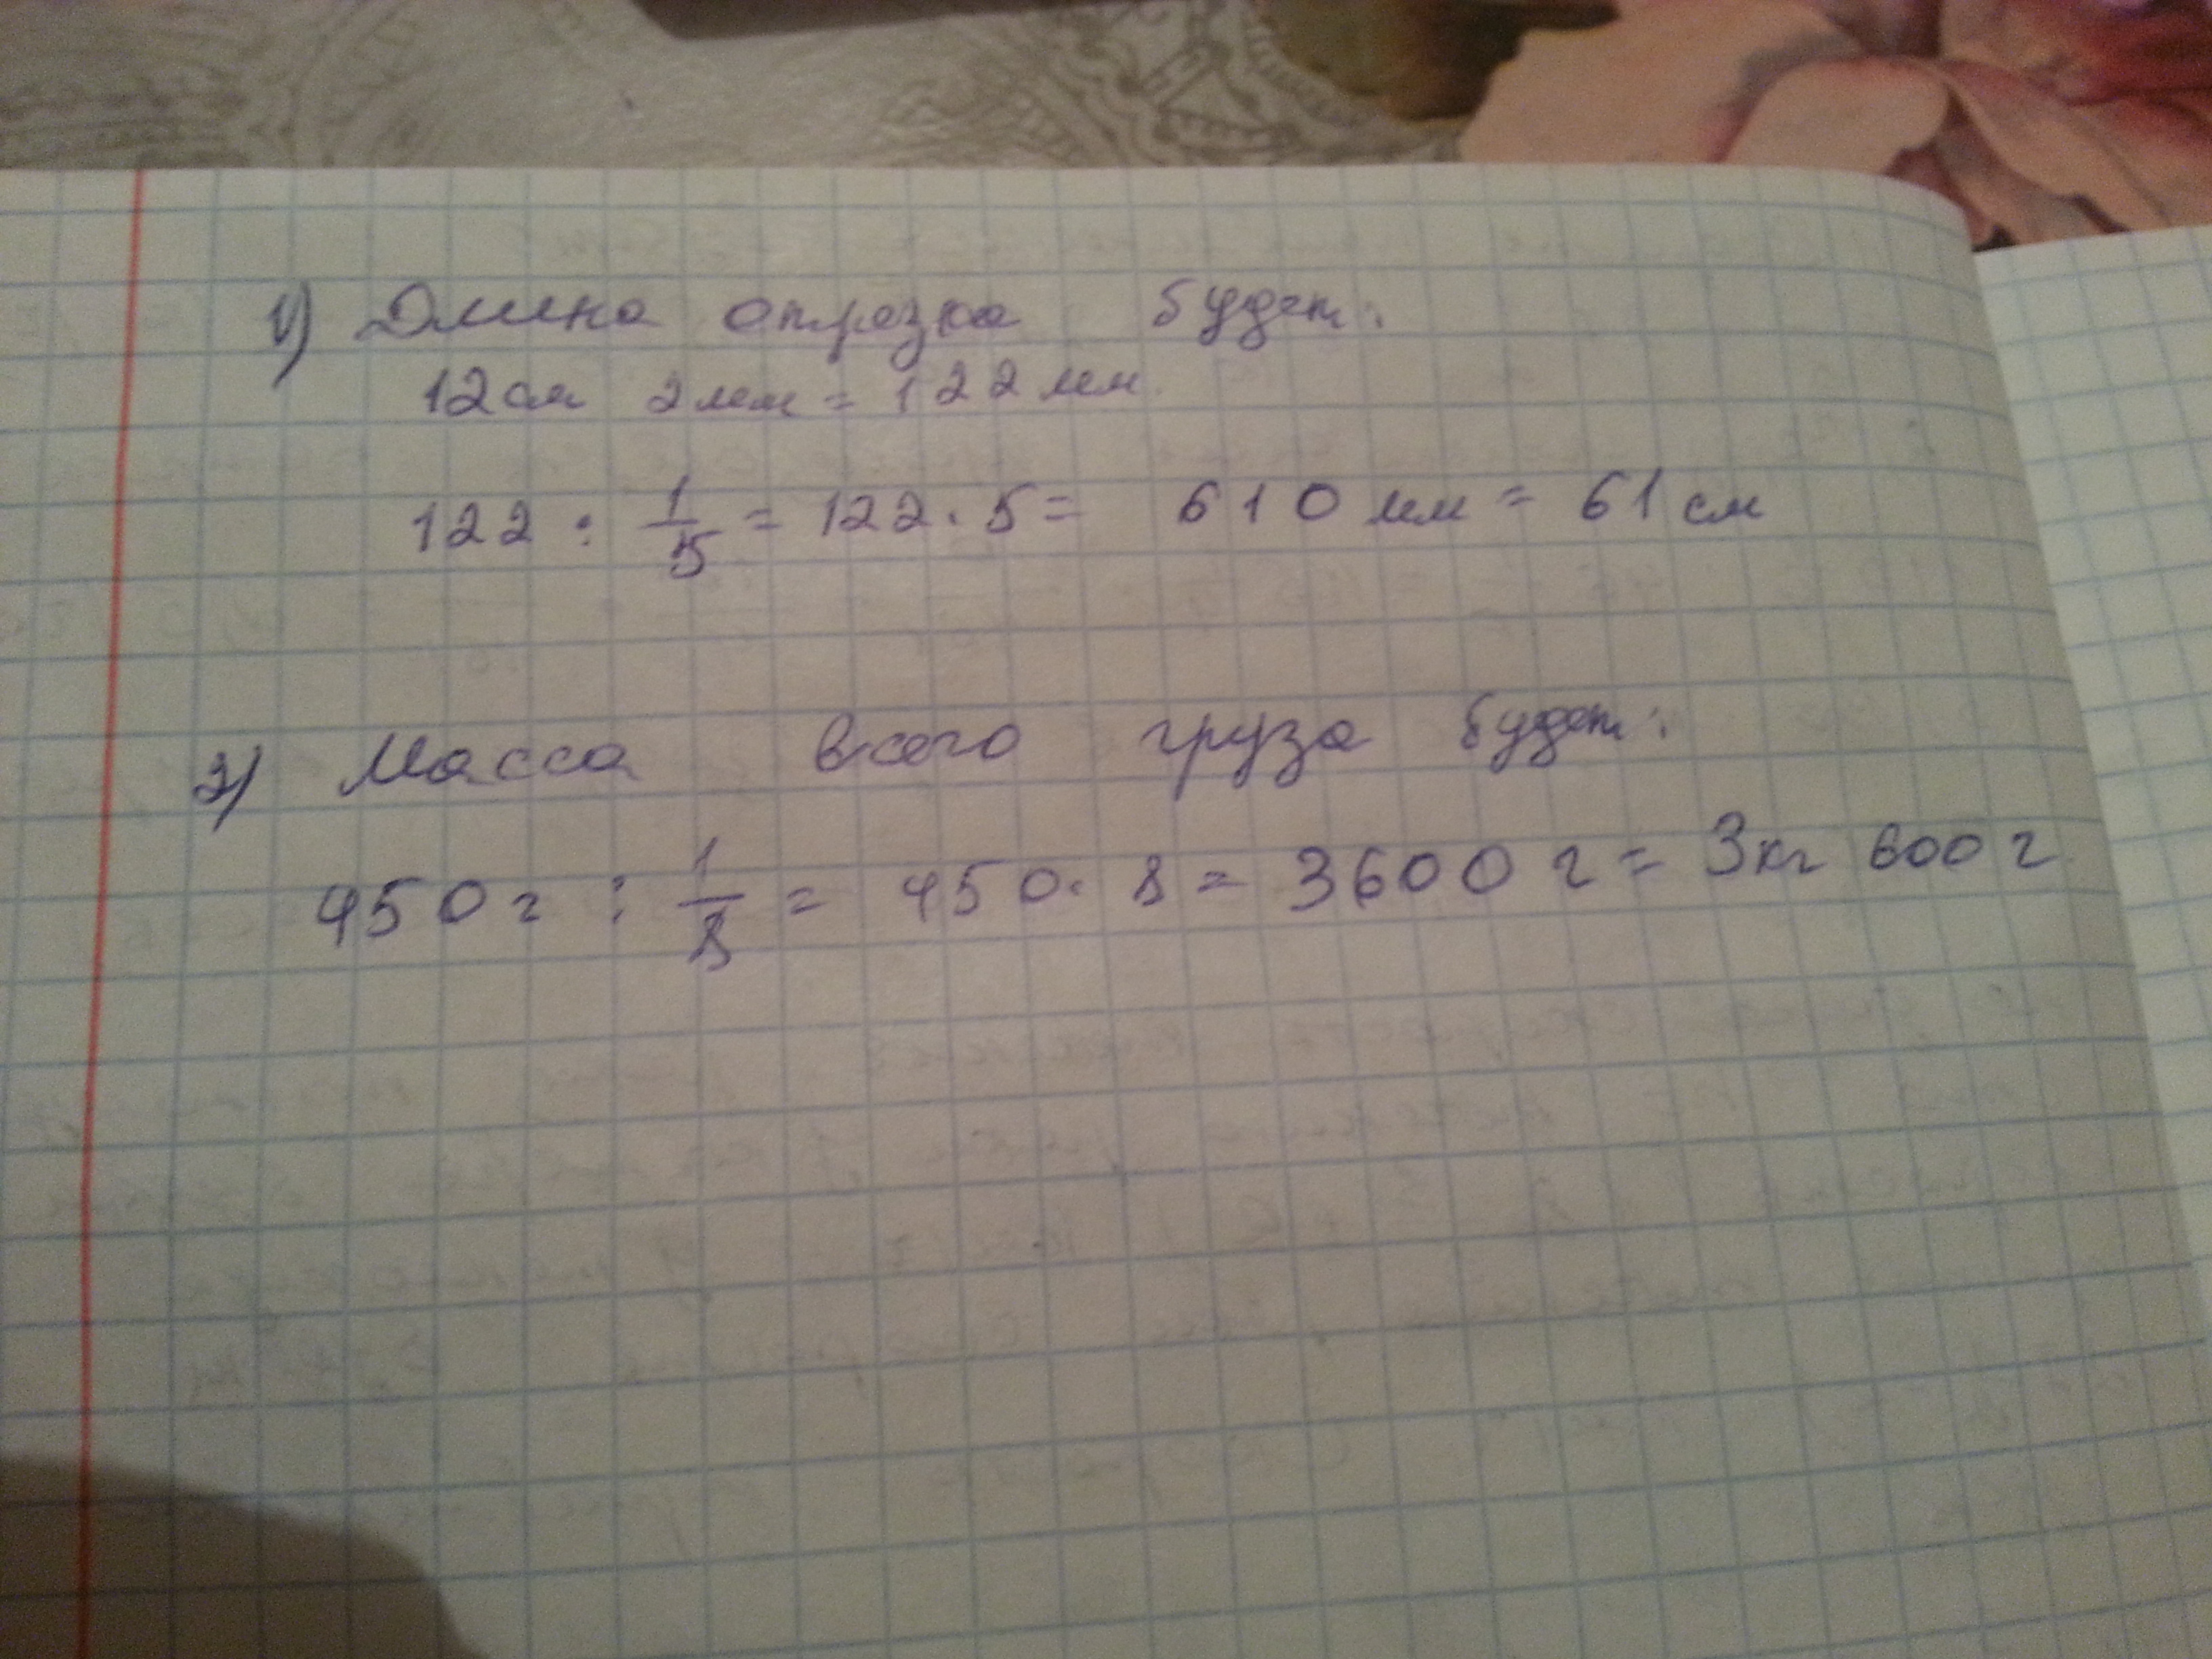 1) Длина отрезка будет:
12 см 2 мм = 122 мм.
122 : 1/5 = 122 · 5 = 610 мм = 61 см
2) Масса всего груза будет:
450 г : 1/8 = 450 · 8 = 3600 г = 3 кг 600 г